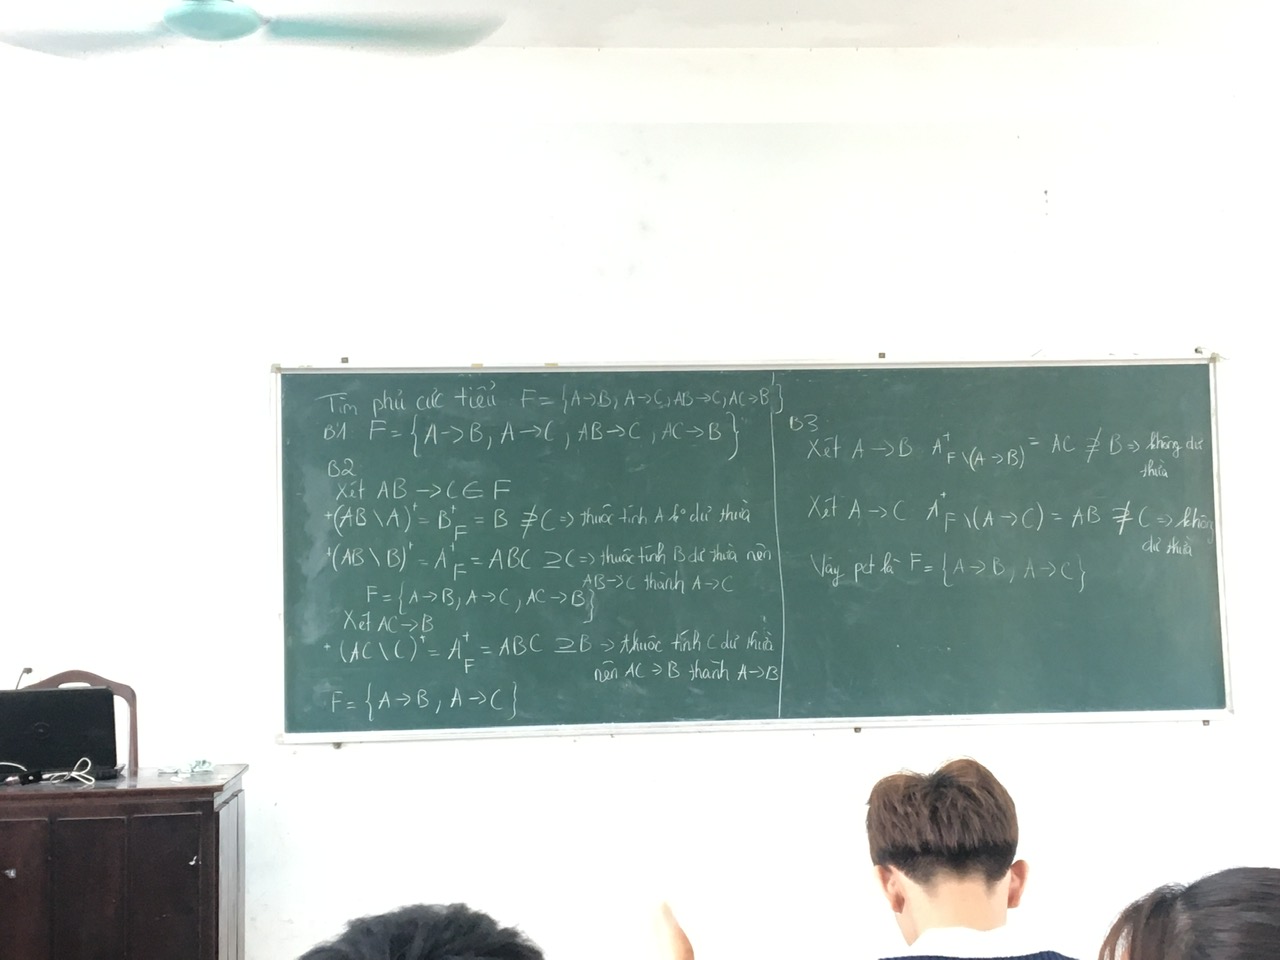 Tìm phủ cực tiểu F = {A→B, A→C, AB→C, AC→B}
B1 F = {A→B, A→C, AB→C, AC→B}
B2
Xét AB→C ∈ F
+(AB\A)⁺ = B⁺F = B ∌ C => thuộc tính A k° dư thừa
+(AB\B)⁺ = A⁺F = ABC ⊇ C => thuộc tính B dư thừa nên
AB→C thành A→C
F = {A→B, A→C, AC→B}
Xét AC→B
+ (AC\C)⁺ = A⁺F = ABC ⊇ B => thuộc tính C dư thừa
nên AC→B thành A→B
F = {A→B, A→C}
B3
Xét A→B A⁺F\(A→B) = AC ⊉ B => không dư
thừa
Xét A→C A⁺F\(A→C) = AB ⊉ C => không
dư thừa
Vậy pct là F = {A→B, A→C}